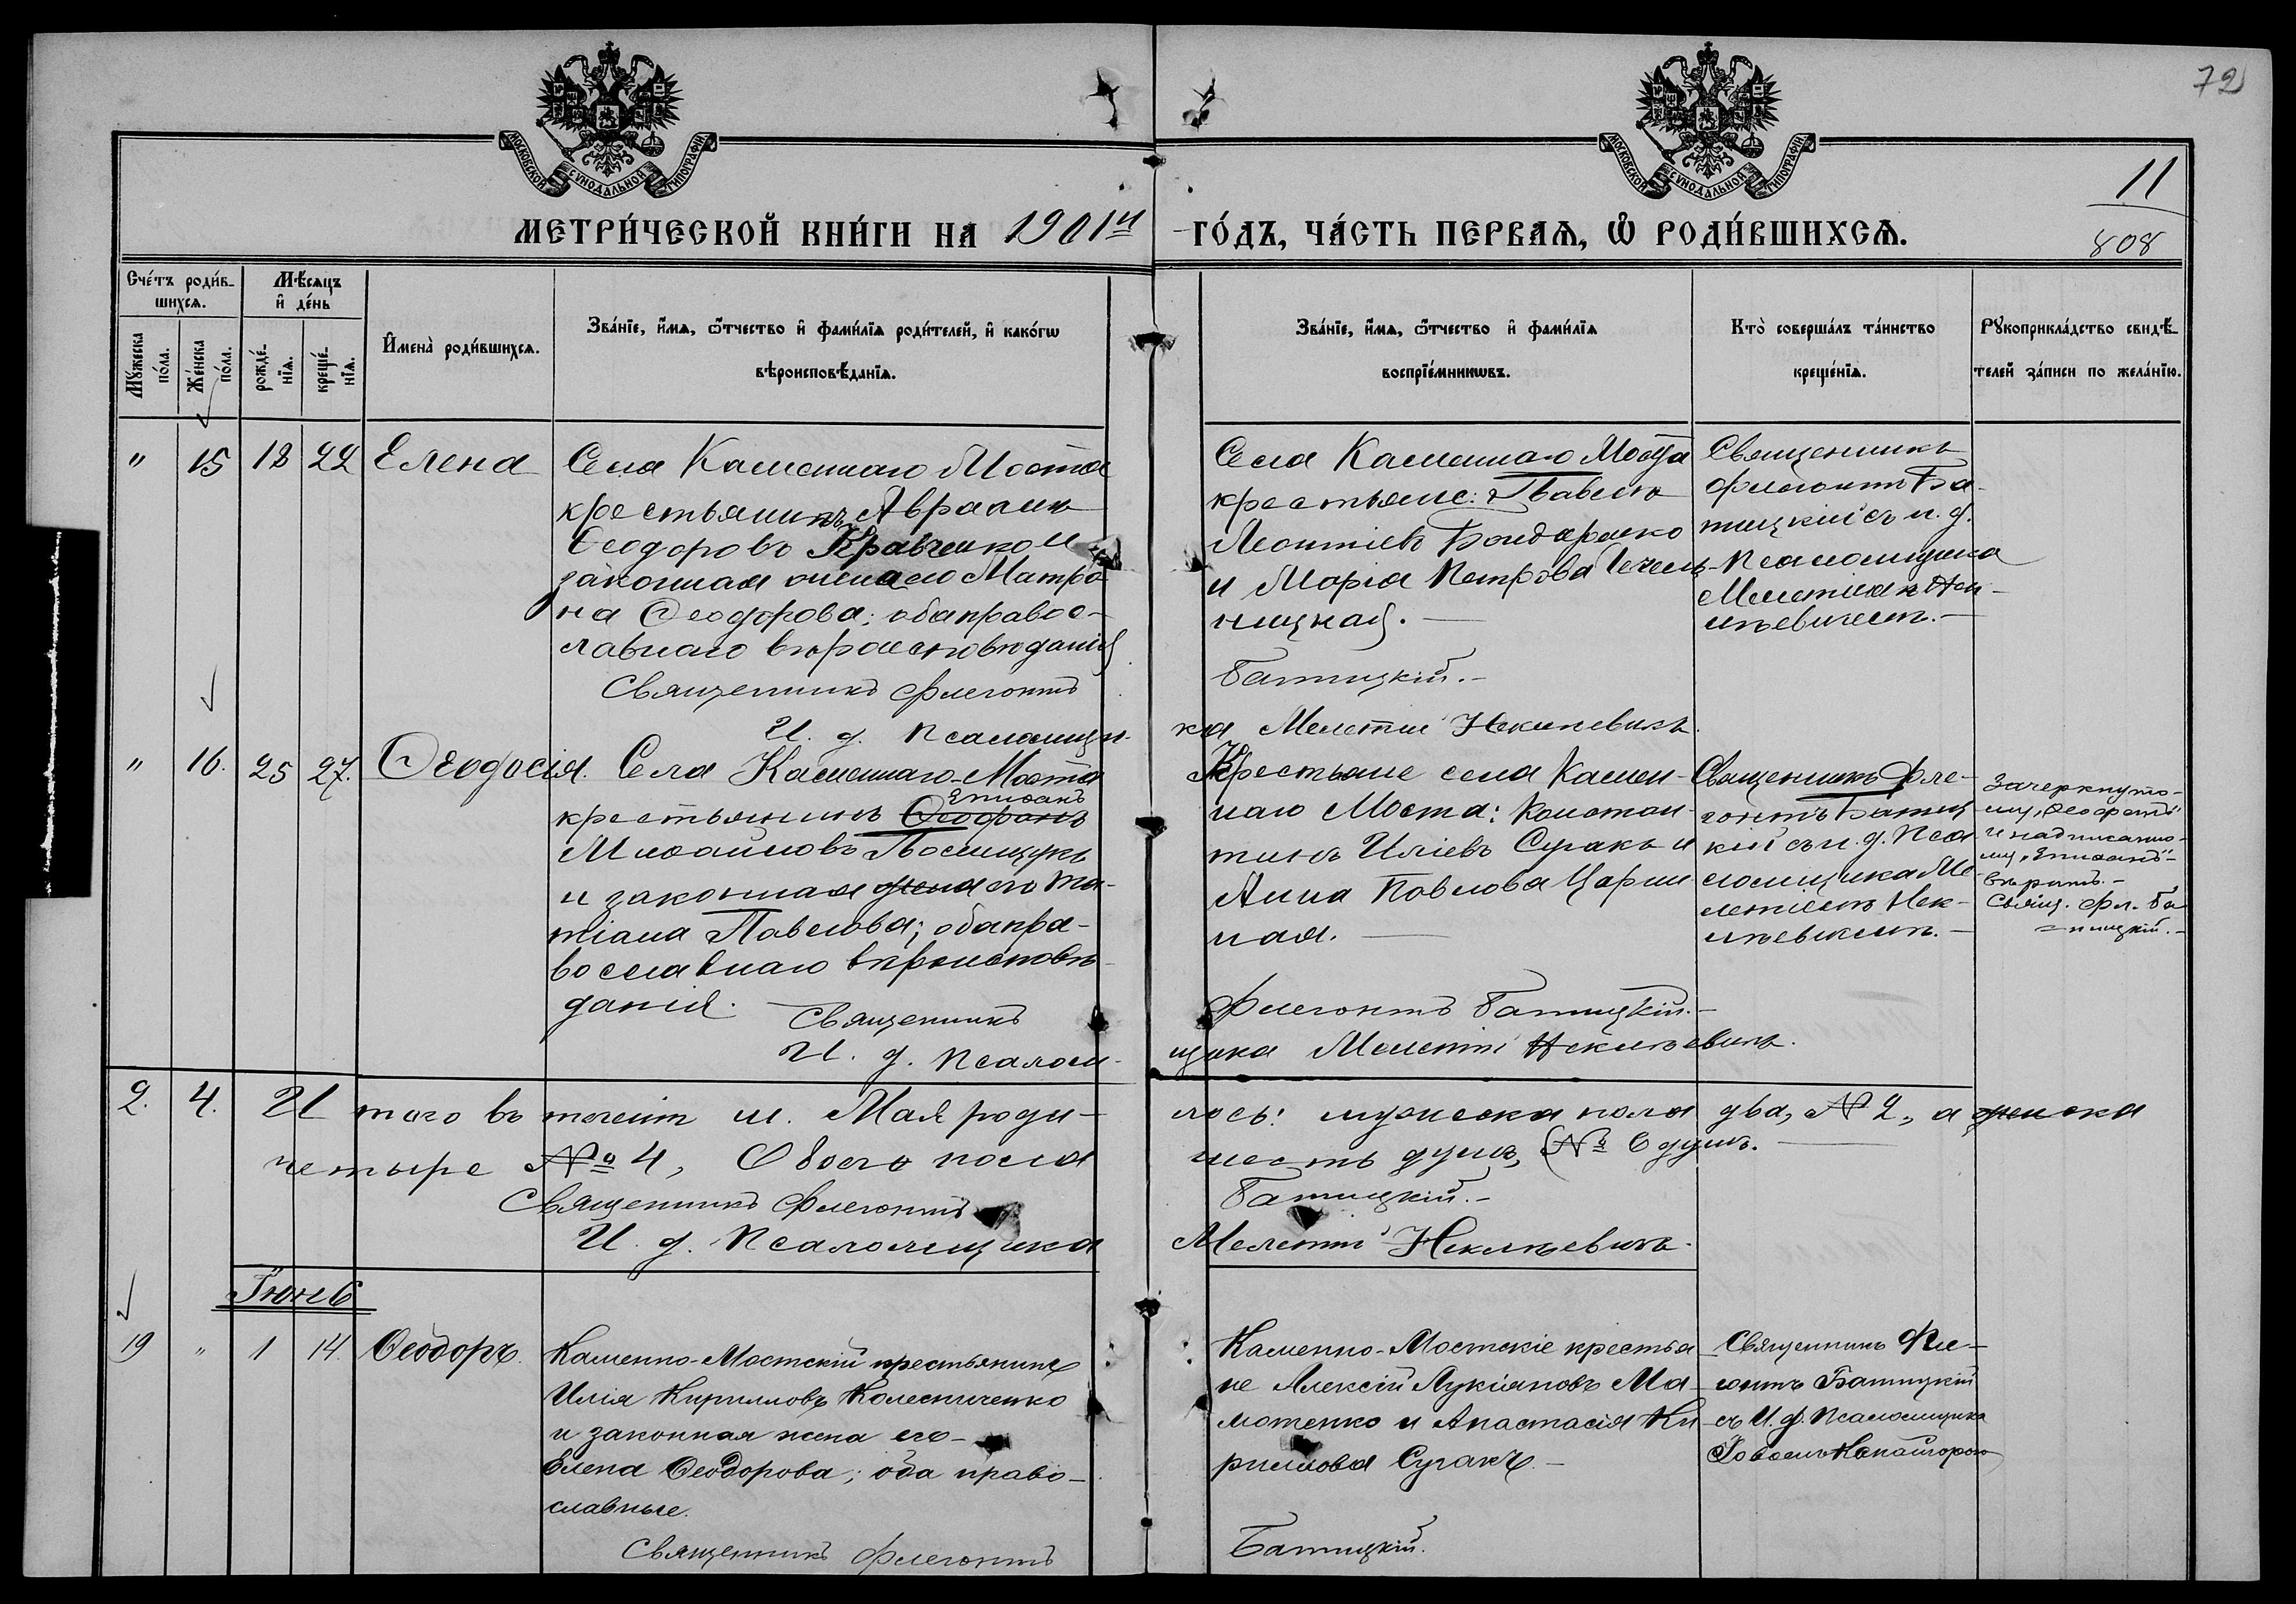 72
МОСКОВСКОЙ СѴНОДАЛЬНОЙ ТИПОГРАФІИ
МОСКОВСКОЙ СѴНОДАЛЬНОЙ ТИПОГРАФІИ
11
808
МЕТРИ́ЧЕСКОЙ КНИ́ГИ НА 1901й ГО́ДЪ, ЧА́СТЬ ПЕРВАѦ, Ѡ҆ РОДИ́ВШИХСѦ.
Сче́тъ роди́в-
шихсѧ.
Мѣсѧцъ
и҆ де́нь
Мꙋжеска по́ла.
Же́нска по́ла.
рожде́-
нїѧ.
креще́-
нїѧ.
И҆мена̀ роди́вшихсѧ.
Зва́нїе, и҆́мѧ, ѻ҆́тчество и҆ фами́лїѧ роди́телей, и҆ како́гѡ
вѣроисповѣ́данїѧ.
Зва́нїе, и҆́мѧ, ѻ҆́тчество и҆ фами́лїѧ
воспрїе́мникѡвъ.
Кто̀ соверша́лъ та́инство
креще́нїѧ.
Рꙋкоприкла́дство свидѣ́-
телей за́писи по жела́нїю.
" 15 18 22 Елена
Села Каменнаго Моста
крестьянинъ Аврамъ
Ѳеодоровъ Кравченко и
законная жена его Матро-
на Ѳеодорова; оба правос-
лавнаго вѣроисповѣданія
Священникъ Флегонтъ
И. д. Псаломщи-
Села Каменнаго Моста
крестьяне: Павелъ
Леонтіевъ Бондаренко
и Марія Петрова Чечель-
ницкая.
Батицкій.
ка Мелетій Некилевичъ.
Священникъ
Флегонтъ Ба-
тицкій съ и. д.
Псаломщика
Мелетіемъ Нек-
илевичемъ.
" 16. 25 27. Ѳеодосія.
Села Каменнаго-Моста
Епифанъ
крестьянинъ Ѳеофанъ
Михайловъ Полищукъ
и законная жена его Та-
тіана Павлова; оба пра-
вославнаго вѣроисповѣ-
данія.
Священникъ
И. д. Псалом-
Крестьяне села Камен-
наго Моста: Констан-
тинъ Иліевъ Сугакъ и
Анна Павлова Царин-
ная.
Флегонтъ Батицкій.
щика Мелетій Некилевичъ.
Священникъ Фле-
гонтъ Батиц
кій съ и. д. Пса
ломщика Ме-
летіемъ Нек-
илевичемъ.
Зачеркнуто-
му „Ѳеофанъ"
и надписанно-
му „Епифанъ"
вѣрить.
Свящ. Фл. Ба
=тицкій.
2. 4. Итого въ теченіи м. Мая роди-
лось: мужеска пола два, № 2, а женска
четыре № 4, Обоего пола
шесть душъ, (№ 6 душъ.
Священникъ Флегонтъ
Батицкій.
И. д. Псаломщика
Мелетій Некилевичъ.
Іюнь
19 " 1 14. Ѳеодоръ.
Каменно-Мостскій крестьянинъ
Илія Кирилловъ Колесниченко
и законная жена его
Елена Ѳеодорова; оба право-
славные.
Священникъ Флегонтъ
Каменно-Мостскіе крестья
не Алексій Лукіановъ Ма-
мотенко и Анастасія Ки
риллова Сугакъ.
Батицкій.
Священникъ Фле-
гонтъ Батицкій
съ И. д. Псаломщика